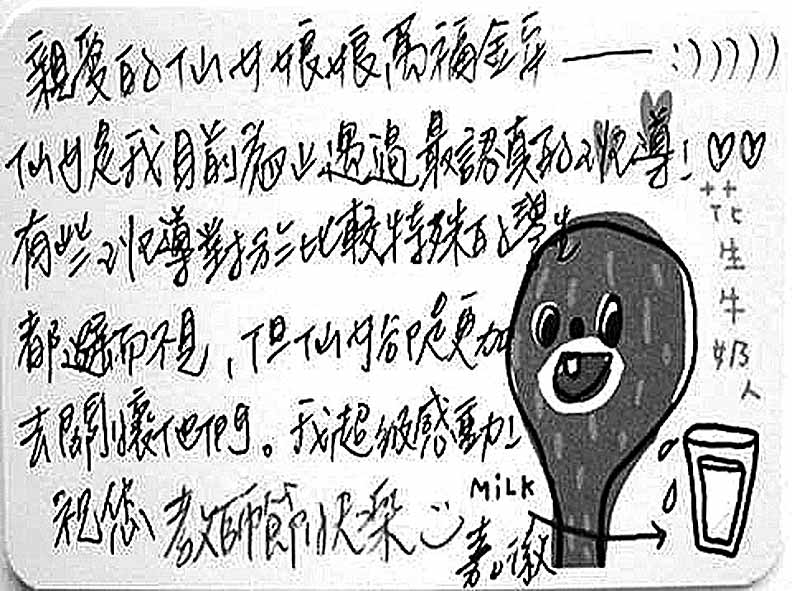 親愛的仙女娘娘萬福金安——:)))))
仙女是我目前為止遇過最認真的班導!♡♡
有些班導對於比較特殊的學生
都避而不見,但仙女卻是更加
去關懷他們。我超級感動!
祝您教師節快樂
嘉徽
花生牛奶人
MiLK